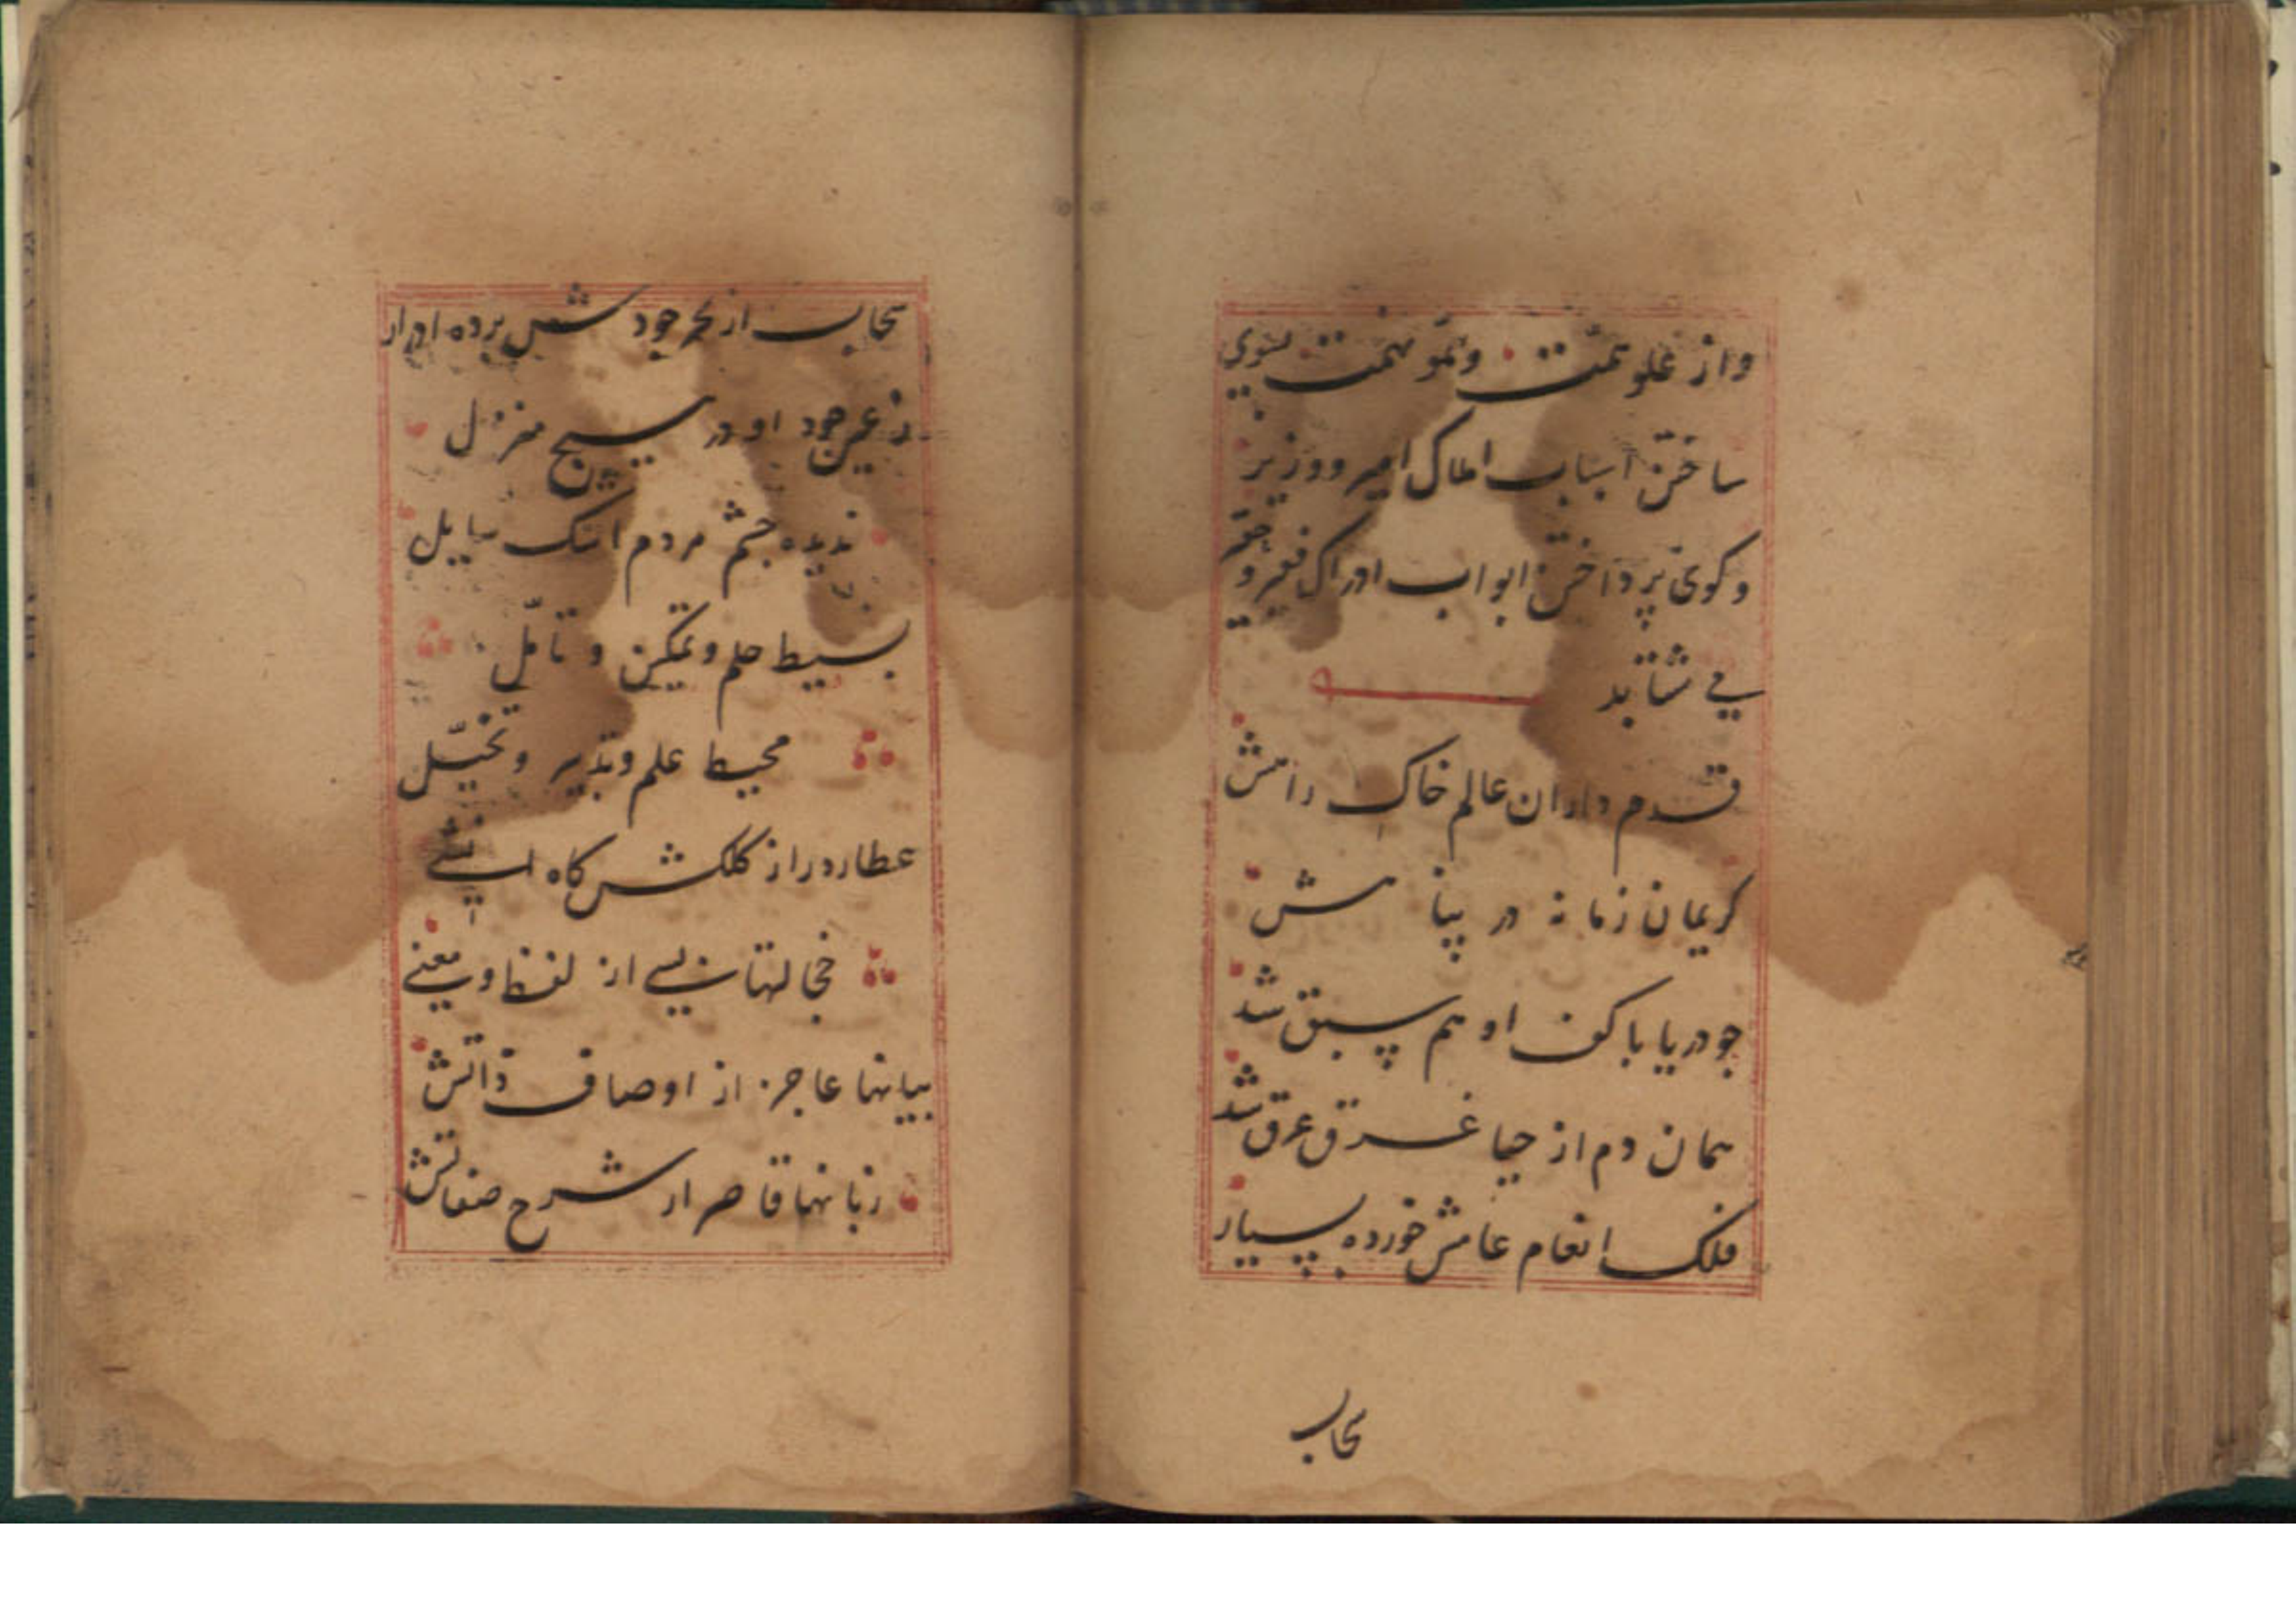 واز علو همت ونمو نهمت بسوی
ساختن اسباب املاک امیر ووزیر
وکوی پرداختن ابواب ادراک فقیر و حقیر
می شتابد
قدم داران عالم خاک راهش
کریمان زمانه در پناهش
جو دریا با کف او هم سبق شد
همان دم از حیا غرق عرق شد
فلک انعام عامش خورده بسیار
سحاب
سحاب از بحر جودش برده ادرار
زعین جود او در هیچ منزل
ندیده جشم مردم اشک سایل
بسیط حلم وتمکین و تأمل
محیط علم وتدبیر وتخیل
عطارد راز کلکش کاه انشی
خجالتها بسی از لفظ ومعنی
بیانها عاجز از اوصاف ذاتش
زبانها قاصر از شرح صفاتش